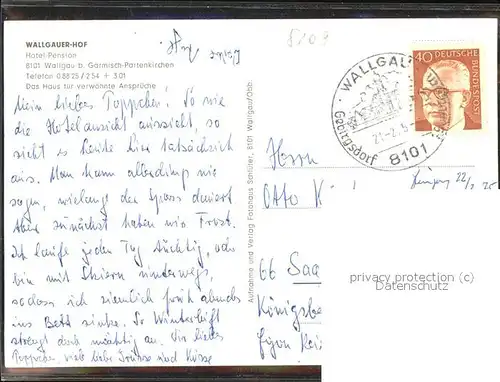 WALLGAUER-HOF
Hotel-Pension
8101 Wallgau b. Garmisch-Partenkirchen
Telefon 0 88 25 / 2 54 + 3 01
Das Haus für verwöhnte Ansprüche
Mein liebes Poppchen! So wie
die Hotelansicht aussieht, so
sieht es heute hier tatsächlich
aus. Man kann allerdings nie
sagen, wielange der Spass dauert
Aber zunächst haben wir Frost.
Ich laufe jeden Tag tüchtig, oder
bin mit Skiern unterwegs,
sodass ich ziemlich früh abends
ins Bett sinke. So Winterluft
strengt doch mächtig an. Dir liebes
Poppchen, viele liebe Grüsse und Küsse
Deine
Aufnahme und Verlag Fotohaus Sanlüter, 8101 Wallgau/Obb.
WALLGAU
Gebirgsdorf
8101
40 DEUTSCHE
BUNDESPOST
Herrn
Otto K
66 Saa
Königsbe
privacy protection (c)
Datenschutz